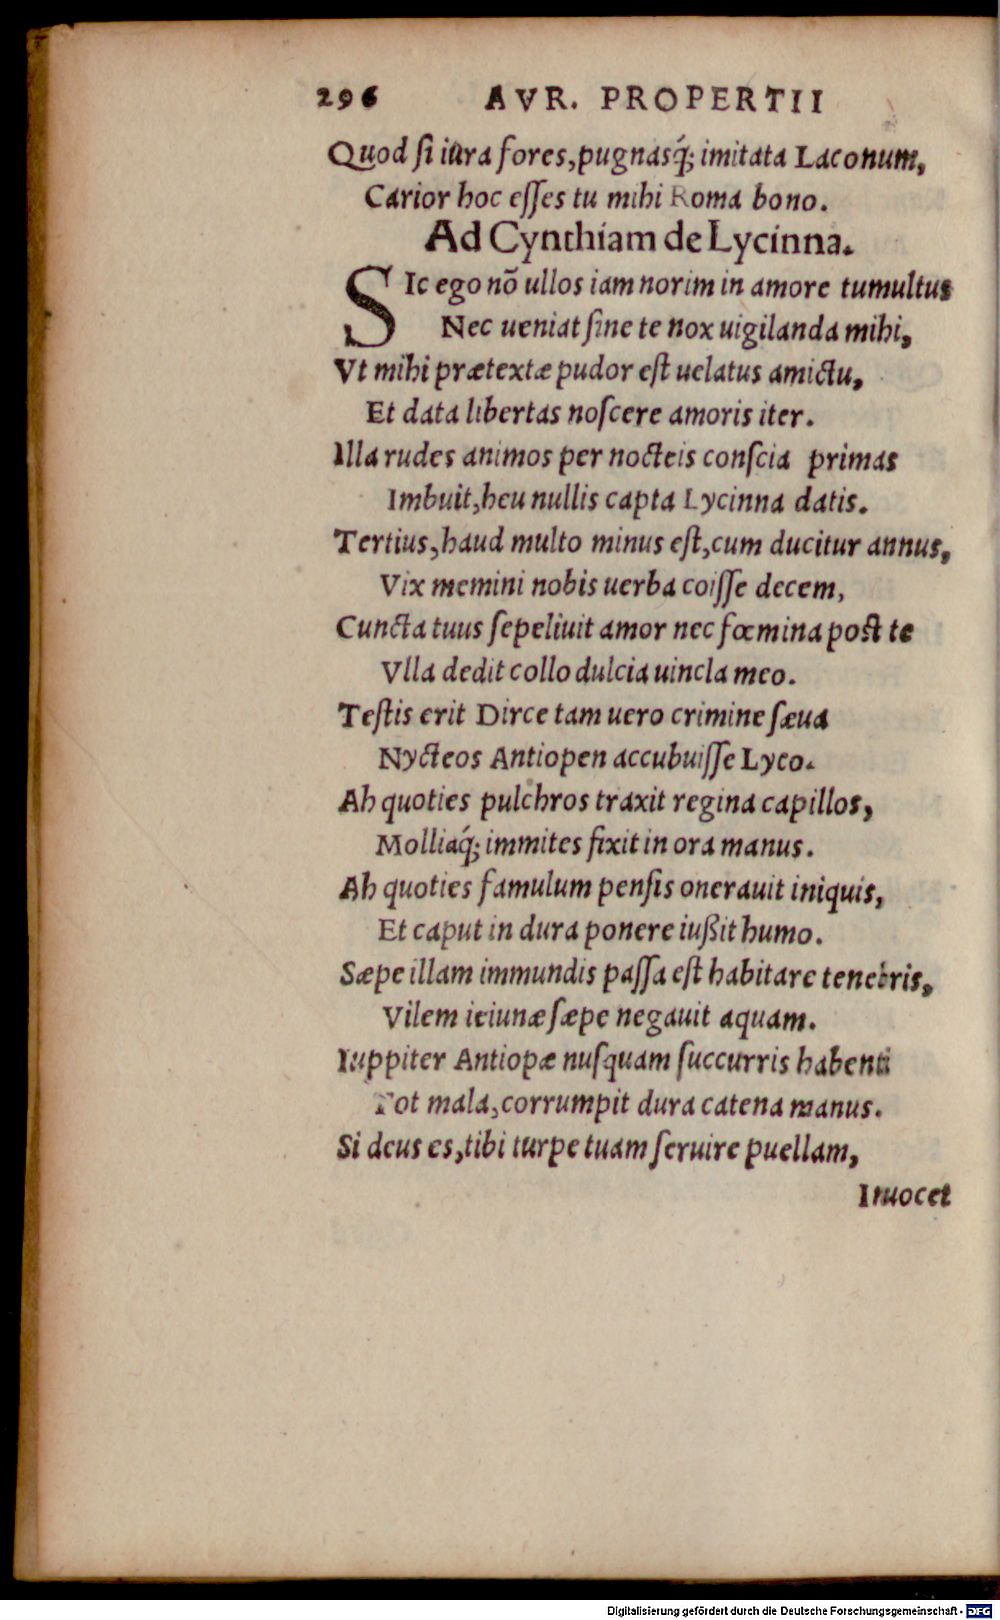 296 AVR. PROPERTII
Quod si iura fores, pugnasq́; imitata Laconum,
Carior hoc esses tu mihi Roma bono.
Ad Cynthiam de Lycinna.
SIc ego nõ ullos iam norim in amore tumultus
Nec ueniat sine te nox uigilanda mihi,
Vt mihi prætextæ pudor est uelatus amictu,
Et data libertas noscere amoris iter.
Illa rudes animos per nocteis conscia primas
Imbuit, heu nullis capta Lycinna datis.
Tertius, haud multo minus est, cum ducitur annus,
Vix memini nobis uerba coisse decem,
Cuncta tuus sepeliuit amor nec fœmina post te
Vlla dedit collo dulcia uincla meo.
Testis erit Dirce tam uero crimine sæua
Nycteos Antiopen accubuisse Lyco.
Ah quoties pulchros traxit regina capillos,
Molliaq́; immites fixit in ora manus.
Ah quoties famulum pensis onerauit iniquis,
Et caput in dura ponere iußit humo.
Sæpe illam immundis passa est habitare tenebris,
Vilem ieiunæ sæpe negauit aquam.
Iuppiter Antiopæ nusquam succurris habenti
Tot mala, corrumpit dura catena manus.
Si deus es, tibi turpe tuam seruire puellam,
Inuocet
Digitalisierung gefördert durch die Deutsche Forschungsgemeinschaft - DFG